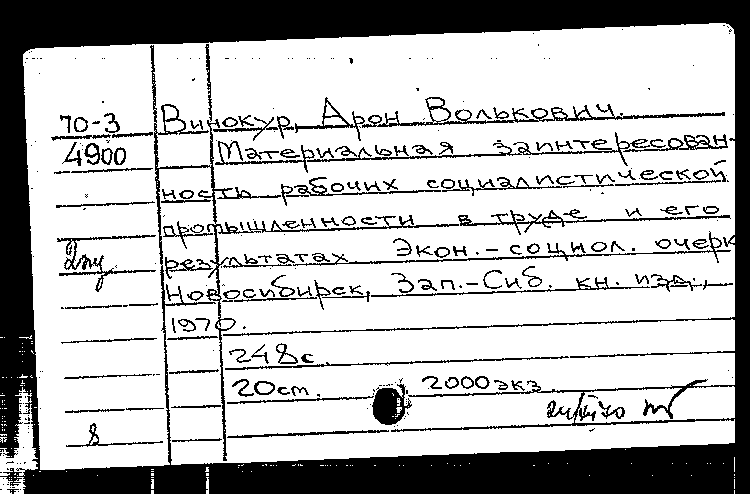 70-3 Винокур, Арон Волькович.
4900 Материальная заинтересован-
ность рабочих социалистической
промышленности в труде и его
результатах. Экон.-социол. очерк
Новосибирск, Зап.-Сиб. кн. изд.,
1970.
248с.
20см. 2000экз.
8